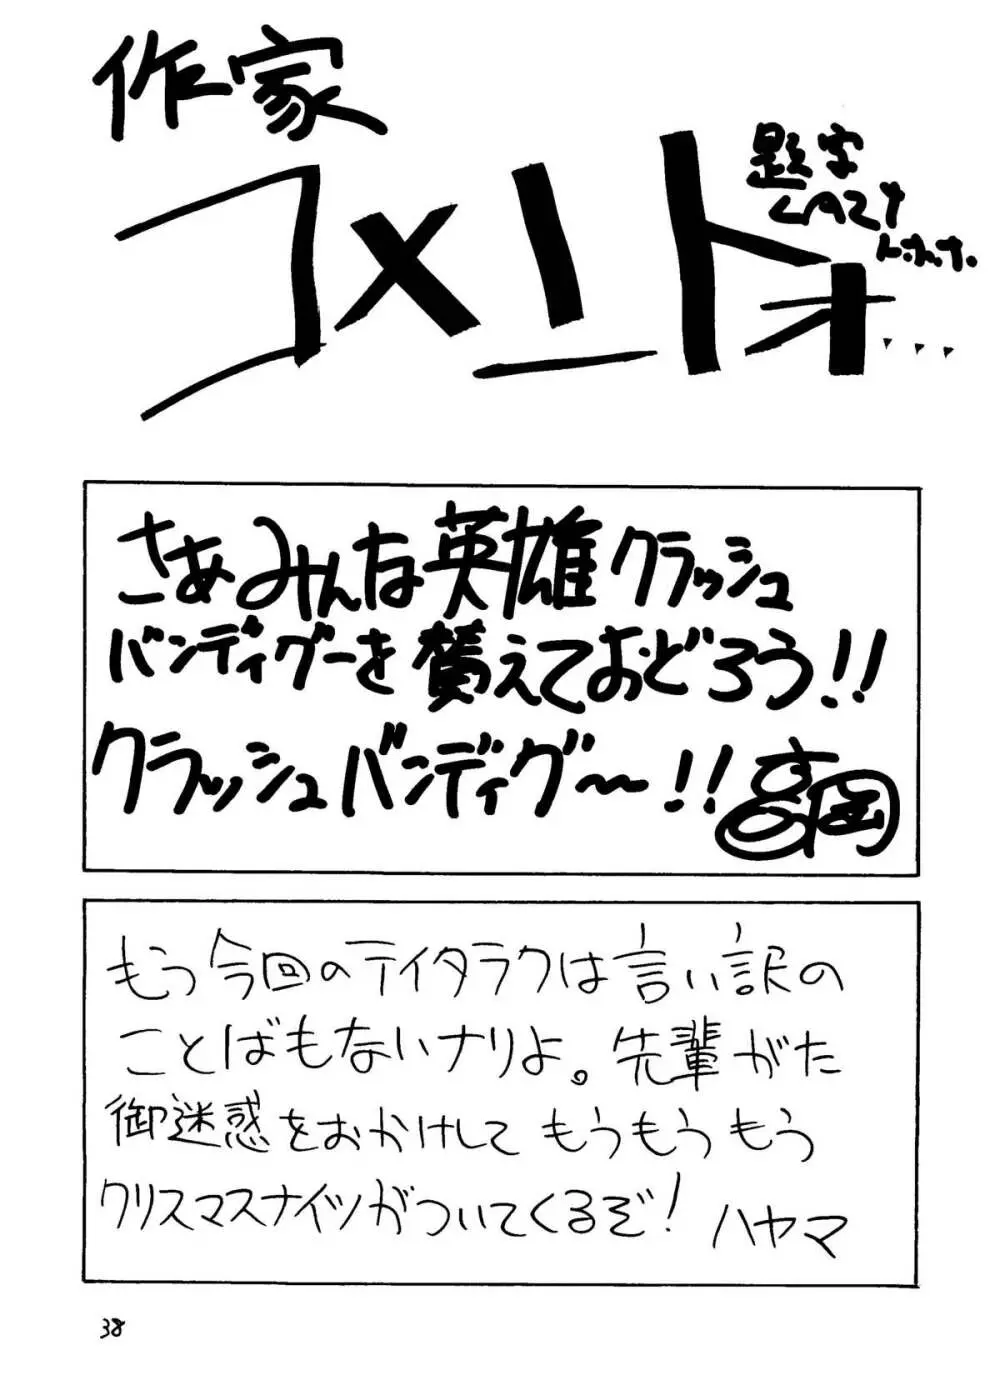 作家
コメントォ...
題字
LAZY
トホホ.
さあみんな英雄クラッシュ
バンディグーを賛えておどろう!!
クラッシュバンディグ〜!!
高岡
もう今回のテイタラクは言い訳の
ことばもないナリよ。先輩がた
御迷惑をおかけして もうもうもう
クリスマスナイツがついてくるぞ! ハヤマ
38